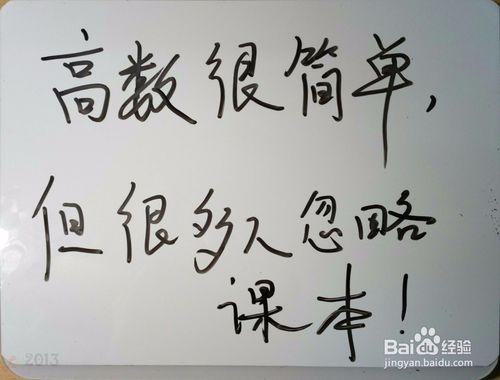 高数很简单,
但很多人忽略
课本!
2013
Bai du 经验
jingyan.baidu.com